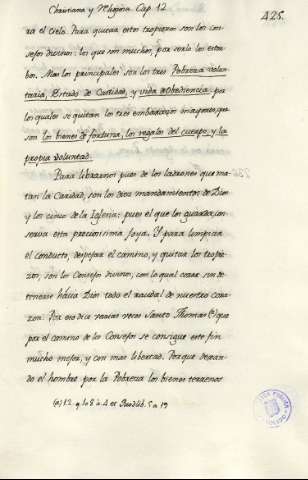 Christiana y Religiosa Cap. 12
425.
ra el cielo. Para quitar estos tropiezos son los con
sejos divinos: los que son muchos, por serlo los estor
bos. Mas los principales son los tres Pobreza volun
taria, Estado de Castidad, y vida de obediencia: por
los quales se quitan los tres embarazos mayores, que
son los bienes de fortuna, los regalos del cuerpo, y la
propia voluntad.
Para librarnos pues de los ladrones que ma
tan la Caridad, son los diez mandamientos de Dios
y los cinco de la Iglesia: pues el que los guarda, con
serva esta preciosissima joya. Y para limpiar
el conducto, despejar el camino, y quitar los tropie
zos, son los Consejos divinos; con lo qual corre sin de
tenerse hácia Dios todo el raudal de nuestro cora
zon. Por eso dice varias veces Santo Thomas (a) que
por el camino de los Consejos se consigue este fin
mucho mejor, y con mas libertad. Porque dejan
do el hombre por la Pobreza los bienes terrenos
(a) 1.2. q. 108. a. 4. et Quodlib. 5. a. 19